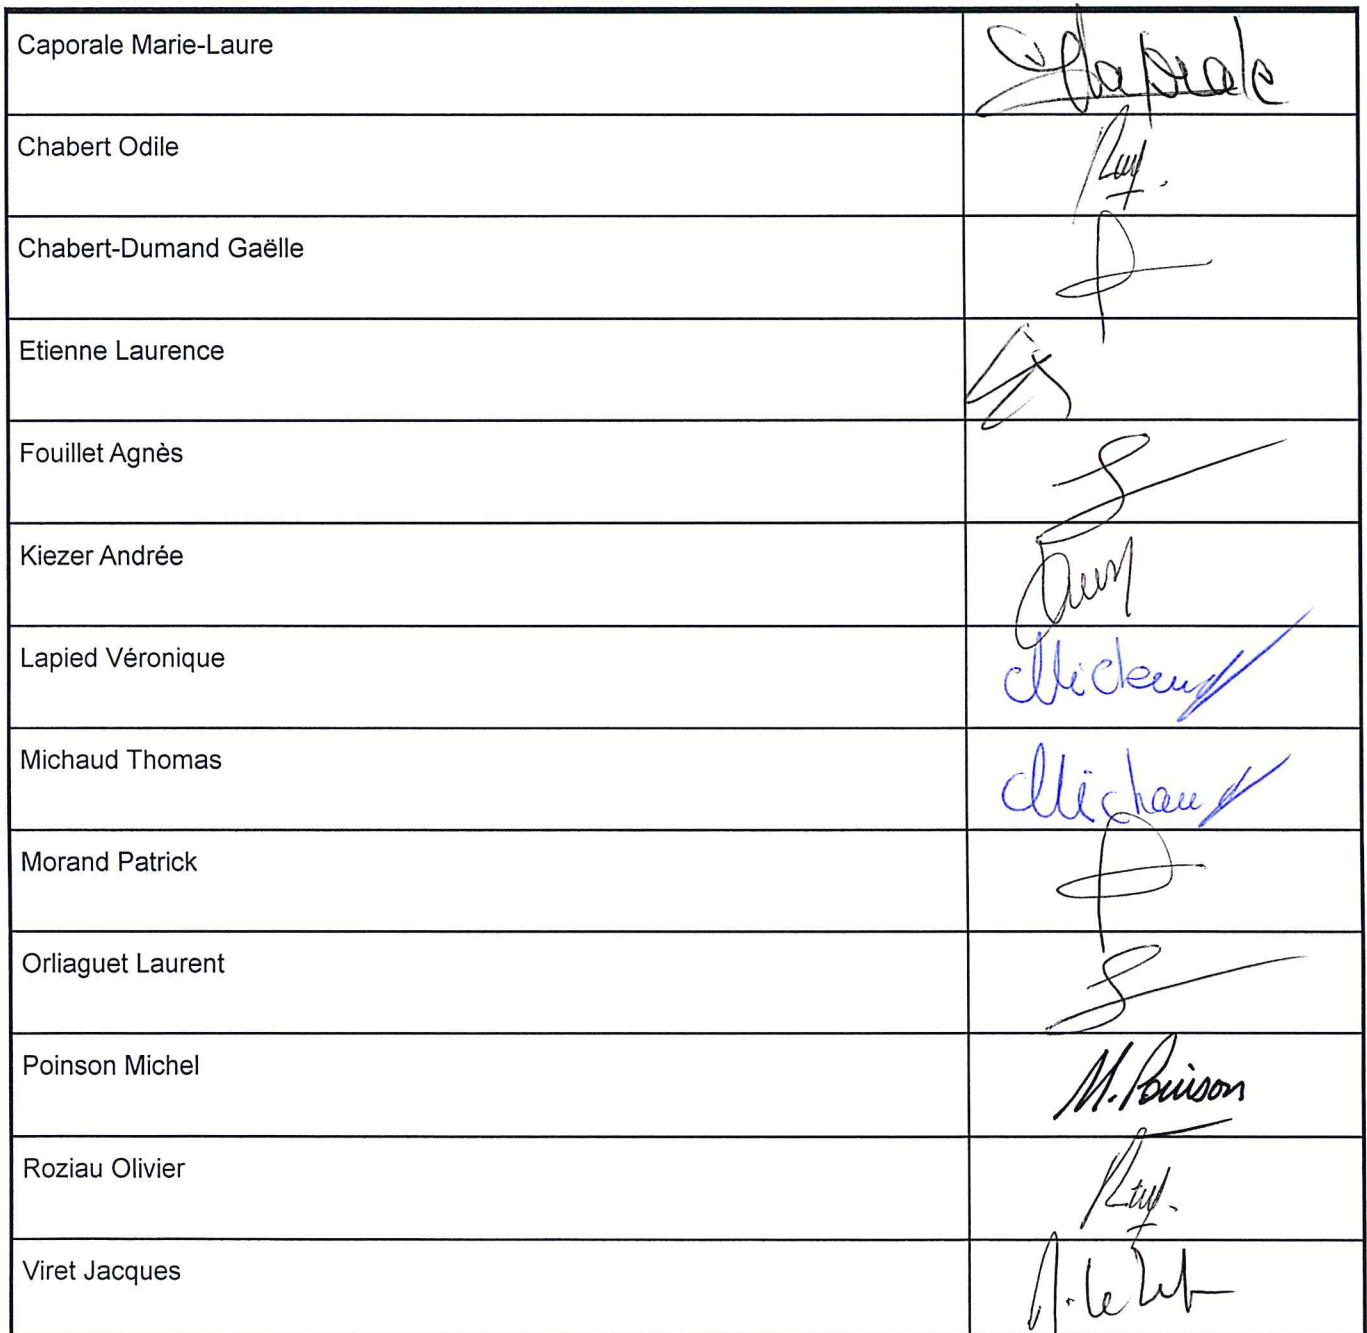 Caporale Marie-Laure
Caporale
Chabert Odile
Chabert-Dumand Gaëlle
Etienne Laurence
Fouillet Agnès
Kiezer Andrée
Lapied Véronique
Michaud
Michaud Thomas
Michaud
Morand Patrick
Orliaguet Laurent
Poinson Michel
M. Poinson
Roziau Olivier
Viret Jacques